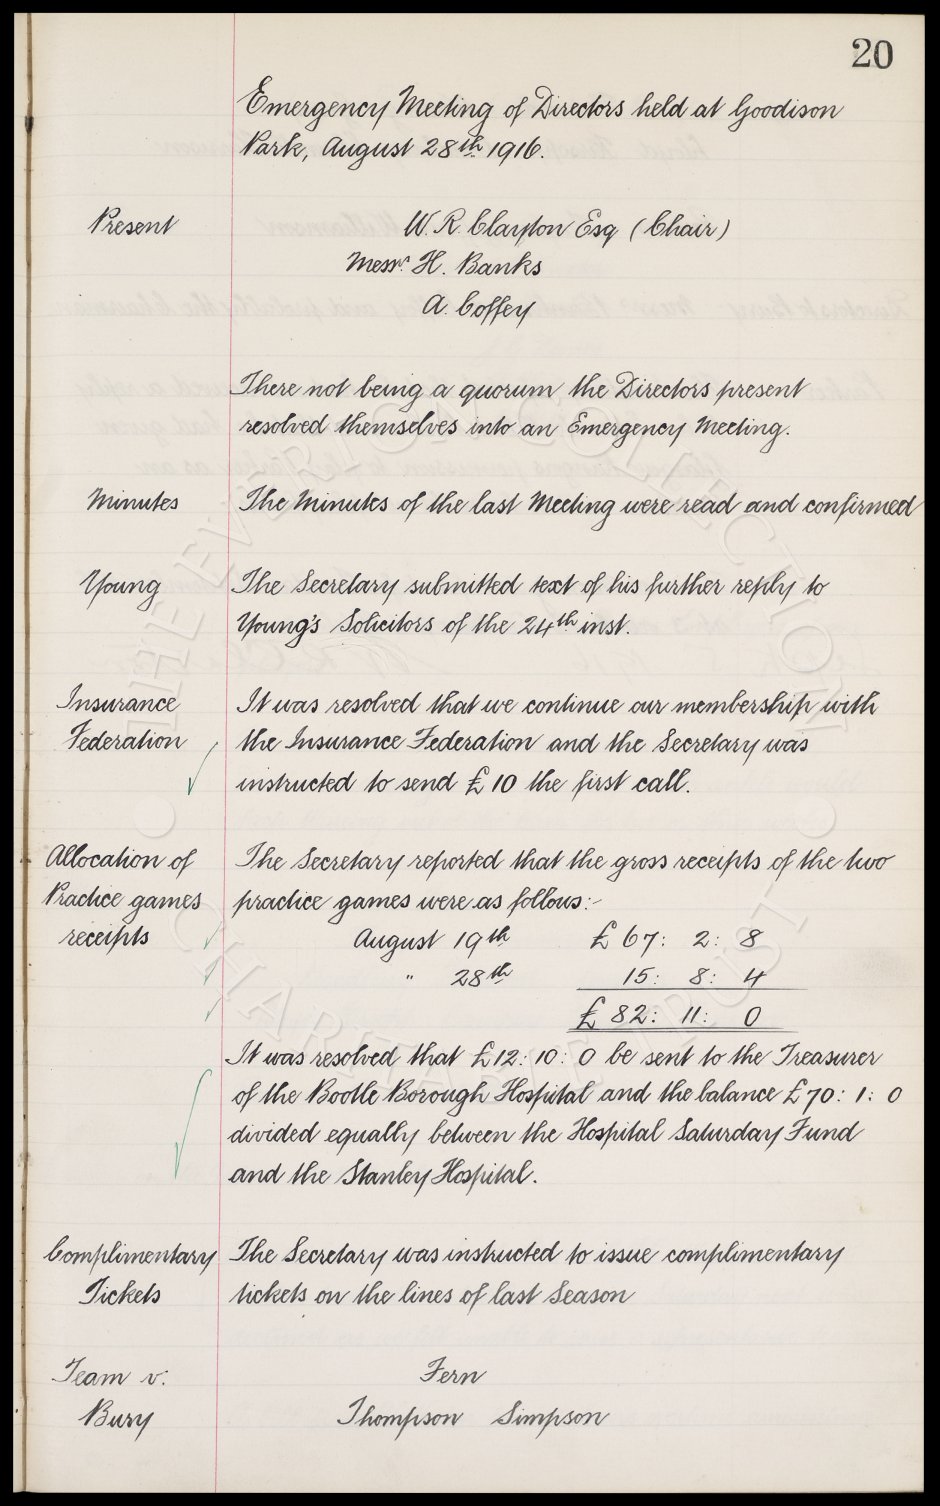 20
Emergency Meeting of Directors held at Goodison
Park, August 28th 1916.
Present W. R. Clayton Esq (Chair)
Messrs. H. Banks
A. Coffey
There not being a quorum the Directors present
resolved themselves into an Emergency Meeting.
Minutes The Minutes of the last Meeting were read and confirmed
Young The Secretary submitted text of his further reply to
Young's Solicitors of the 24th inst.
Insurance It was resolved that we continue our membership with
Federation the Insurance Federation and the Secretary was
instructed to send £10 the first call.
Allocation of The Secretary reported that the gross receipts of the two
Practice games practice games were as follows:-
receipts August 19th £67: 2: 8
" 28th 15: 8: 4
£82: 11: 0
It was resolved that £12: 10: 0 be sent to the Treasurer
of the Bootle Borough Hospital and the balance £70: 1: 0
divided equally between the Hospital Saturday Fund
and the Stanley Hospital.
Complimentary The Secretary was instructed to issue complimentary
Tickets tickets on the lines of last Season
Team v. Fern
Bury Thompson Simpson
THE EVERTON COLLECTION
CHARITABLE TRUST